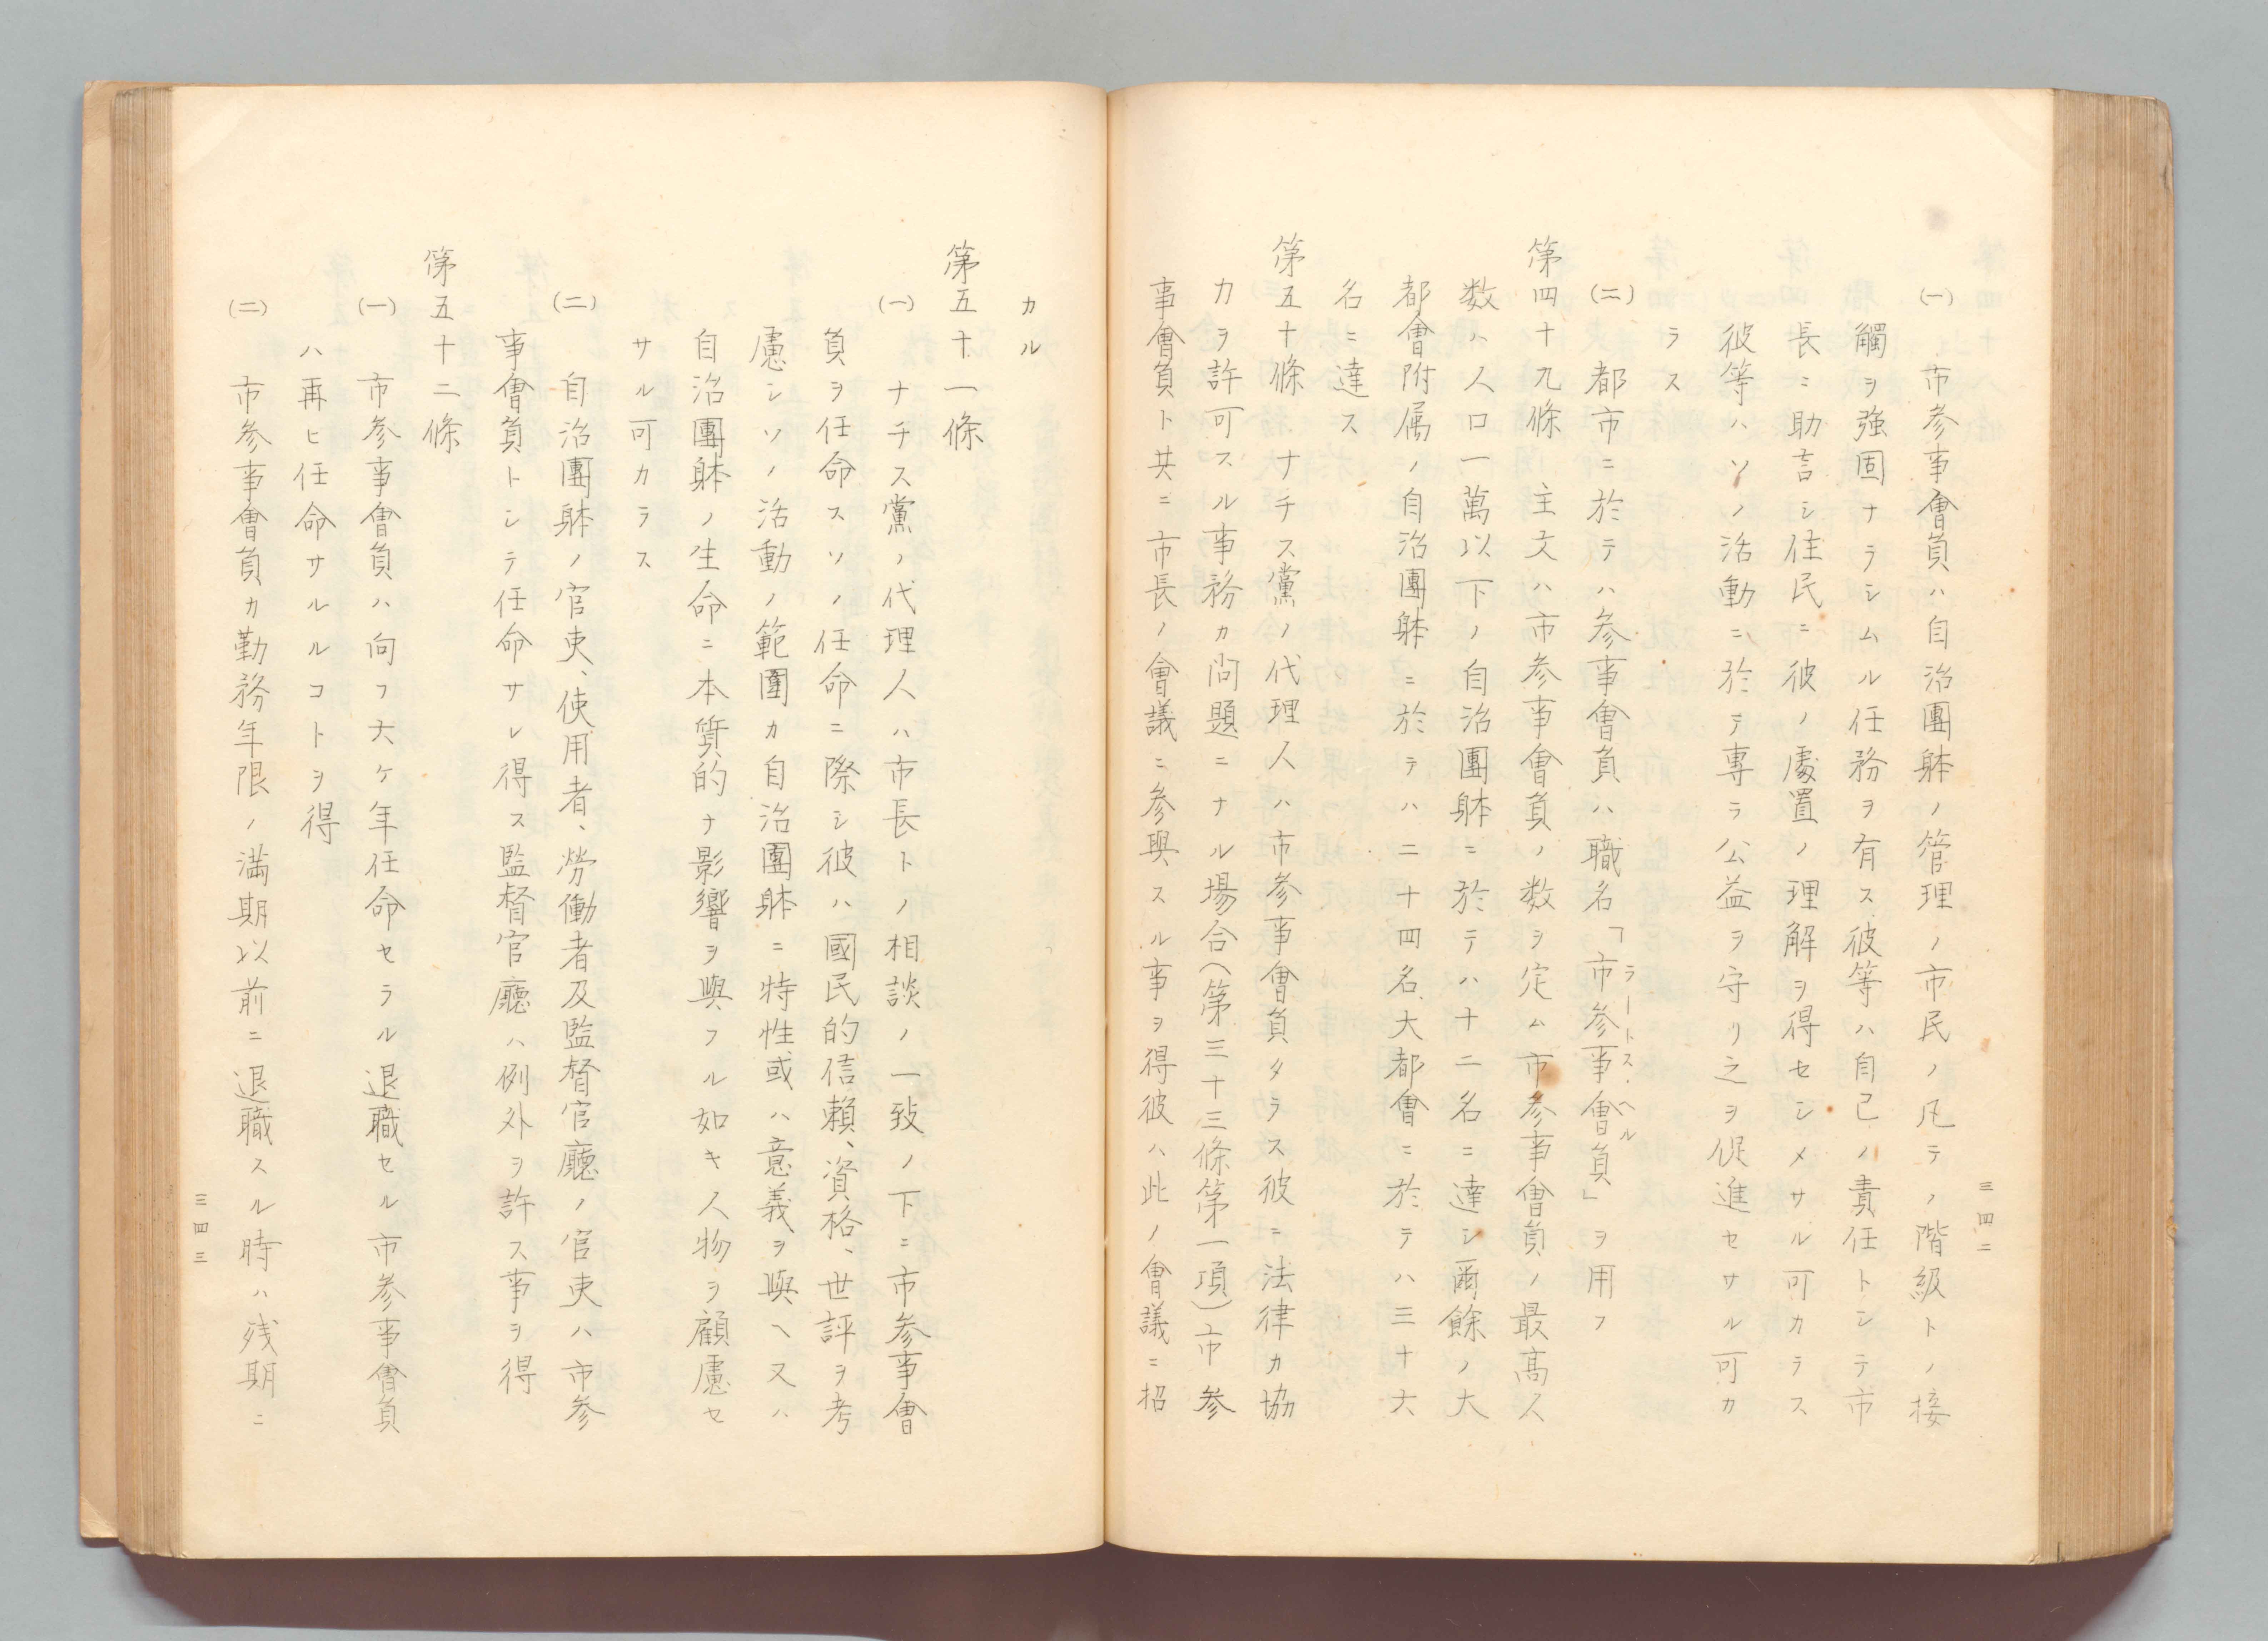 (一)　市参事會員ハ自治團躰ノ管理ノ市民ノ凡テノ階級トノ接
觸ヲ強固ナラシムル任務ヲ有ス彼等ハ自己ノ責任トシテ市
長ニ助言シ住民ニ彼ノ處置ノ理解ヲ得セシメサル可カラス
彼等ハソノ活動ニ於テ專ラ公益ヲ守リ之ヲ促進セサル可カ
ラス
(二)　都市ニ於テハ参事會員ハ職名「市参事會員」ヲ用フ
ラートスヘル
第四十九條　主文ハ市参事會員ノ数ヲ定ム市参事會員ノ最高人
数ハ人口一萬以下ノ自治團躰ニ於テハ十二名ニ達シ爾餘ノ大
都會附属ノ自治團躰ニ於テハ二十四名、大都會ニ於テハ三十六
名ニ達ス
第五十條　ナチス黨ノ代理人ハ市参事會員タラス彼ニ法律カ協
力ヲ許可スル事務カ問題ニナル場合(第三十三條第一項)市参
事會員ト共ニ市長ノ會議ニ参與スル事ヲ得彼ハ此ノ會議ニ招
三四二
カル
第五十一條
(一)　ナチス黨ノ代理人ハ市長トノ相談ノ一致ノ下ニ市参事會
員ヲ任命スソノ任命ニ際シ彼ハ國民的信頼、資格、世評ヲ考
慮シソノ活動ノ範圍カ自治團躰ニ特性或ハ意義ヲ與ヘ又ハ
自治團躰ノ生命ニ本質的ナ影響ヲ與フル如キ人物ヲ顧慮セ
サル可カラス
(二)　自治團躰ノ官吏、使用者、勞働者及監督官廳ノ官吏ハ市参
事會員トシテ任命サレ得ス監督官廳ハ例外ヲ許ス事ヲ得
第五十二條
(一)　市参事會員ハ向フ六ケ年任命セラル退職セル市参事會員
ハ再ヒ任命サルルコトヲ得
(二)　市参事會員カ勤務年限ノ満期以前ニ退職スル時ハ残期ニ
三四三